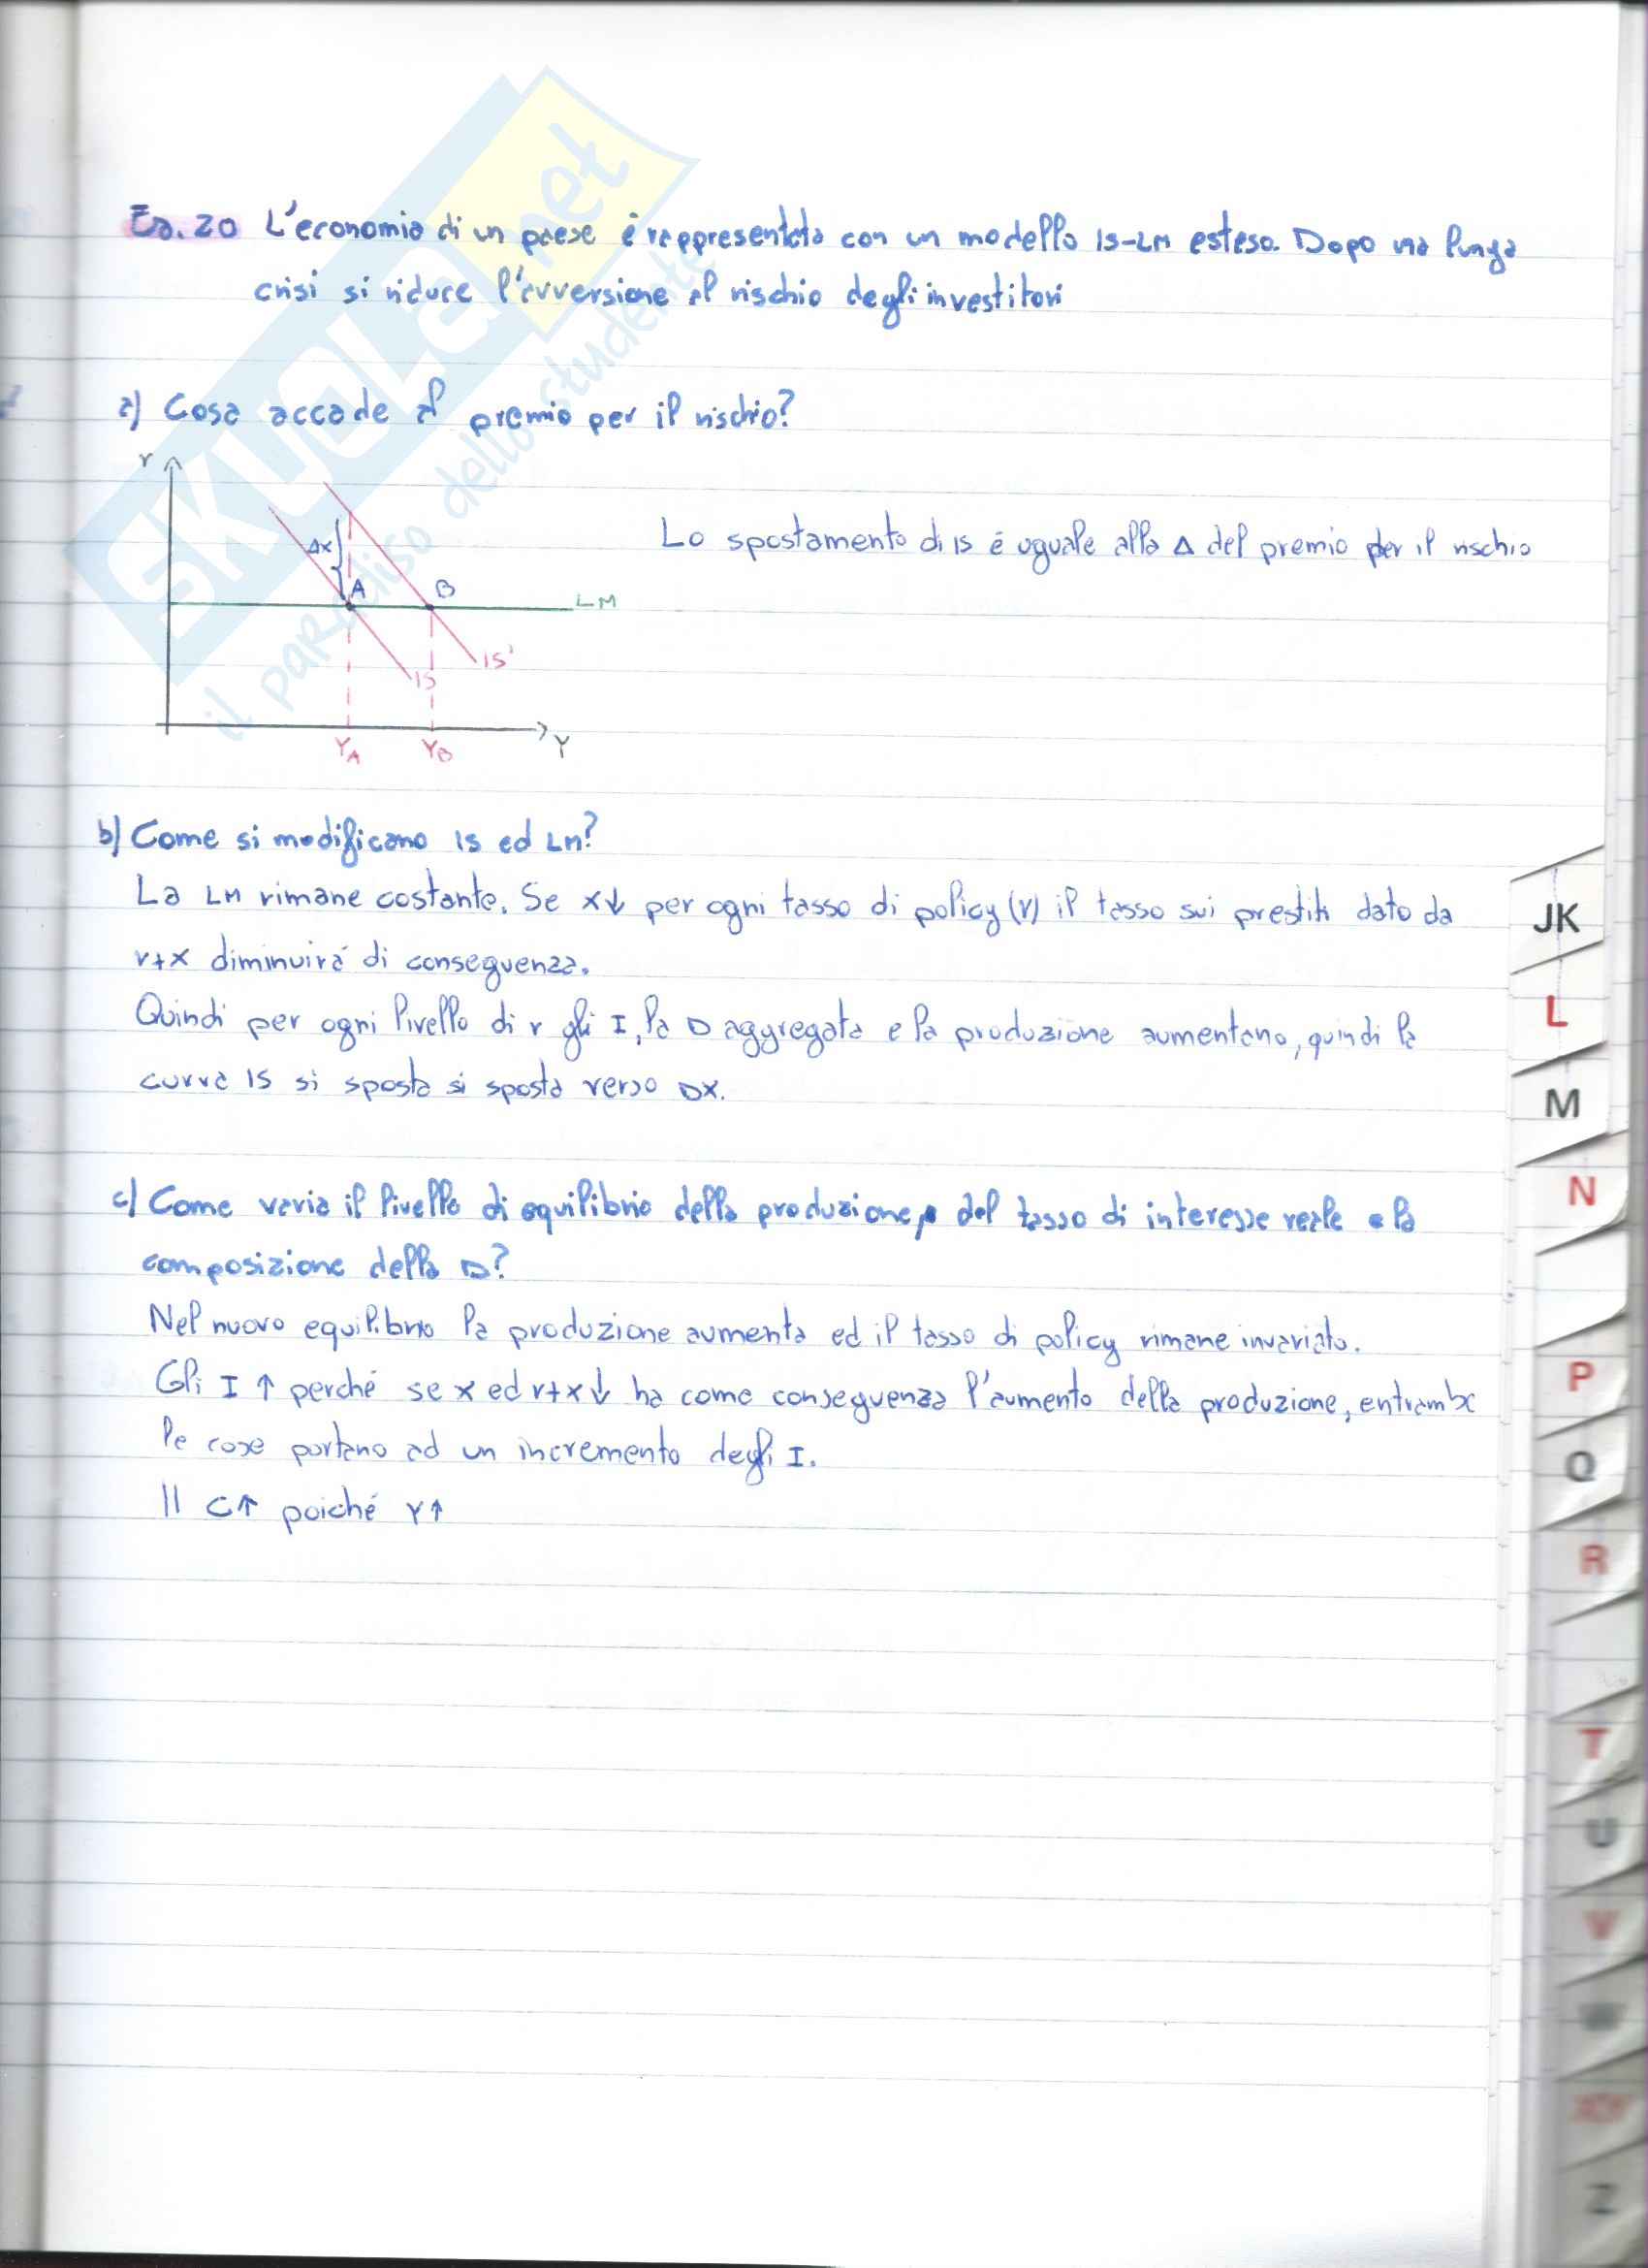 Es. 20 L'economia di un paese è rappresentata con un modello IS-LM esteso. Dopo una lunga
crisi si riduce l'avversione al rischio degli investitori
a) Cosa accade al premio per il rischio?
r
Δx
A
B
LM
IS'
IS
YA
YB
Y
Lo spostamento di IS é uguale alla Δ del premio per il rischio
b) Come si modificano IS ed LM?
La LM rimane costante. Se x↓ per ogni tasso di policy (r) il tasso sui prestiti dato da
r+x diminuirá di conseguenza.
Quindi per ogni livello di r gli I, la D aggregata e la produzione aumentano, quindi la
curva IS si sposta si sposta verso DX.
c) Come varia il livello di equilibrio della produzione, del tasso di interesse reale e la
composizione della D?
Nel nuovo equilibrio la produzione aumenta ed il tasso di policy rimane invariato.
Gli I ↑ perché se x ed r+x↓ ha come conseguenza l'aumento della produzione, entrambe
le cose portano ad un incremento degli I.
Il C↑ poiché Y↑
SKUOLA.net
il paradiso dello studente
JK
L
M
N
P
Q
R
T
U
V
Z